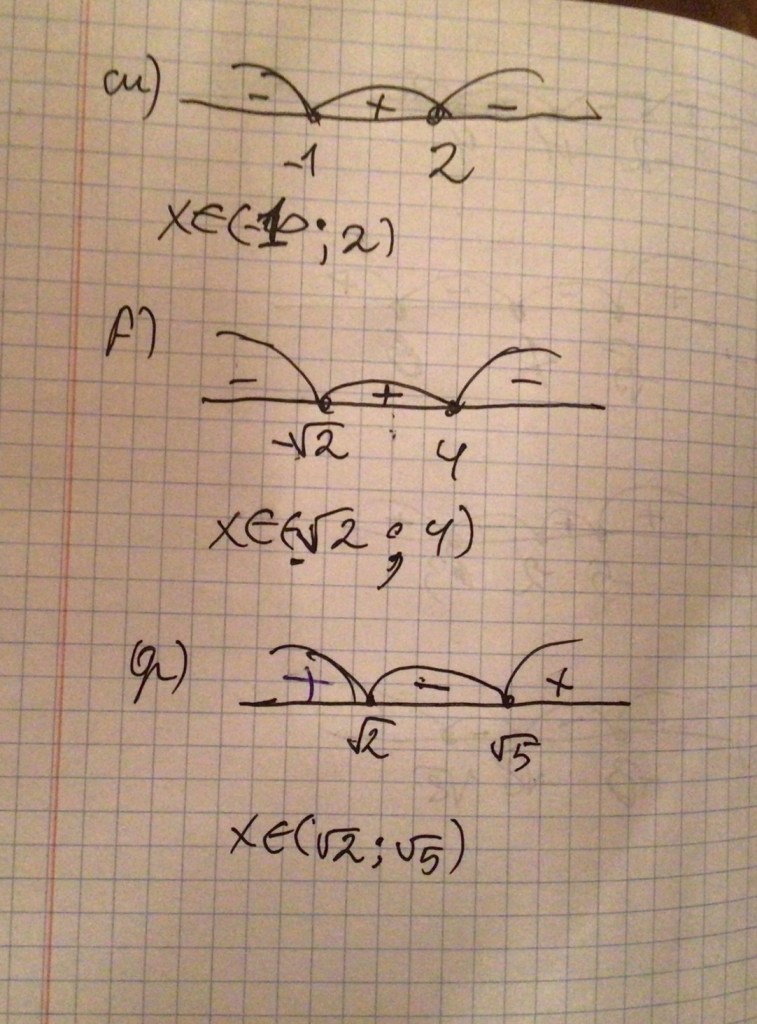 а)
- + -
-1 2
x∈(-1;2)
- + -
-√2 4
x∈(-√2;4)
+ - +
√2 √5
x∈(√2;√5)